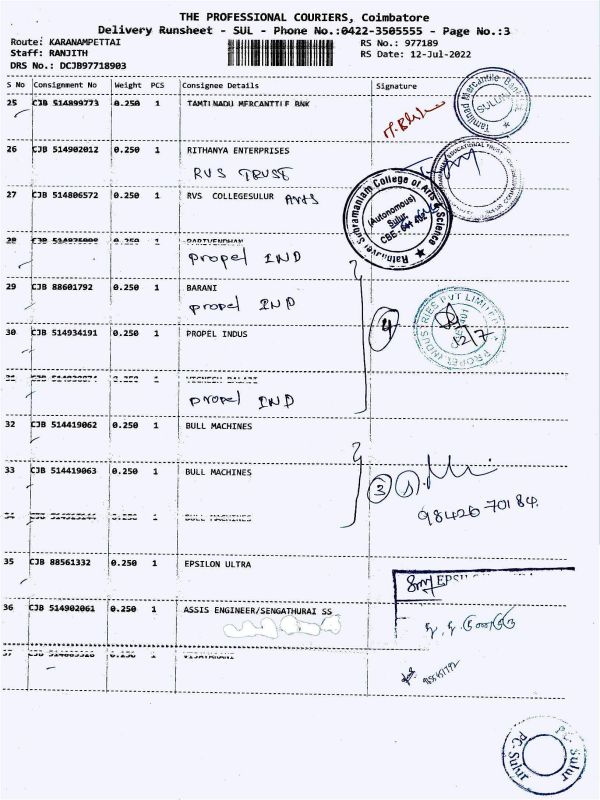 THE PROFESSIONAL COURIERS, Coimbatore
Delivery Runsheet - SUL - Phone No.:0422-3505555 - Page No.:3
Route: KARANAMPETTAI RS No.: 977189
Staff: RANJITH RS Date: 12-Jul-2022
DRS No.: DCJB97718903
S No Consignment No Weight PCS Consignee Details Signature
25 CJB 514899773 0.250 1 TAMILNADU MERCANTTLE BNK
Tamilnad Mercantile Bank
SULUR
26 CJB 514902012 0.250 1 RITHANYA ENTERPRISES
RVS TRUST
EDUCATIONAL TRUST
27 CJB 514806572 0.250 1 RVS COLLEGESULUR ARTS
Rathnavel Subramaniam College of Arts & Science
(Autonomous)
Sulur
CBE
28 0.250 1 PARIVENDHAN
Propel IND
29 CJB 88601792 0.250 1 BARANI
Propel IND
30 CJB 514934191 0.250 1 PROPEL INDUS
4
PROPEL INDUSTRIES PVT LIMITED
12/7
31 0.250 1 VIGNESH BALAJI
Propel IND
32 CJB 514419062 0.250 1 BULL MACHINES
33 CJB 514419063 0.250 1 BULL MACHINES
3
9842670184.
34 0.250 1 BULL MACHINES
35 CJB 88561332 0.250 1 EPSILON ULTRA
36 CJB 514902061 0.250 1 ASSIS ENGINEER/SENGATHURAI SS
37 0.250 1
PC-Sulur
PC-Sulur